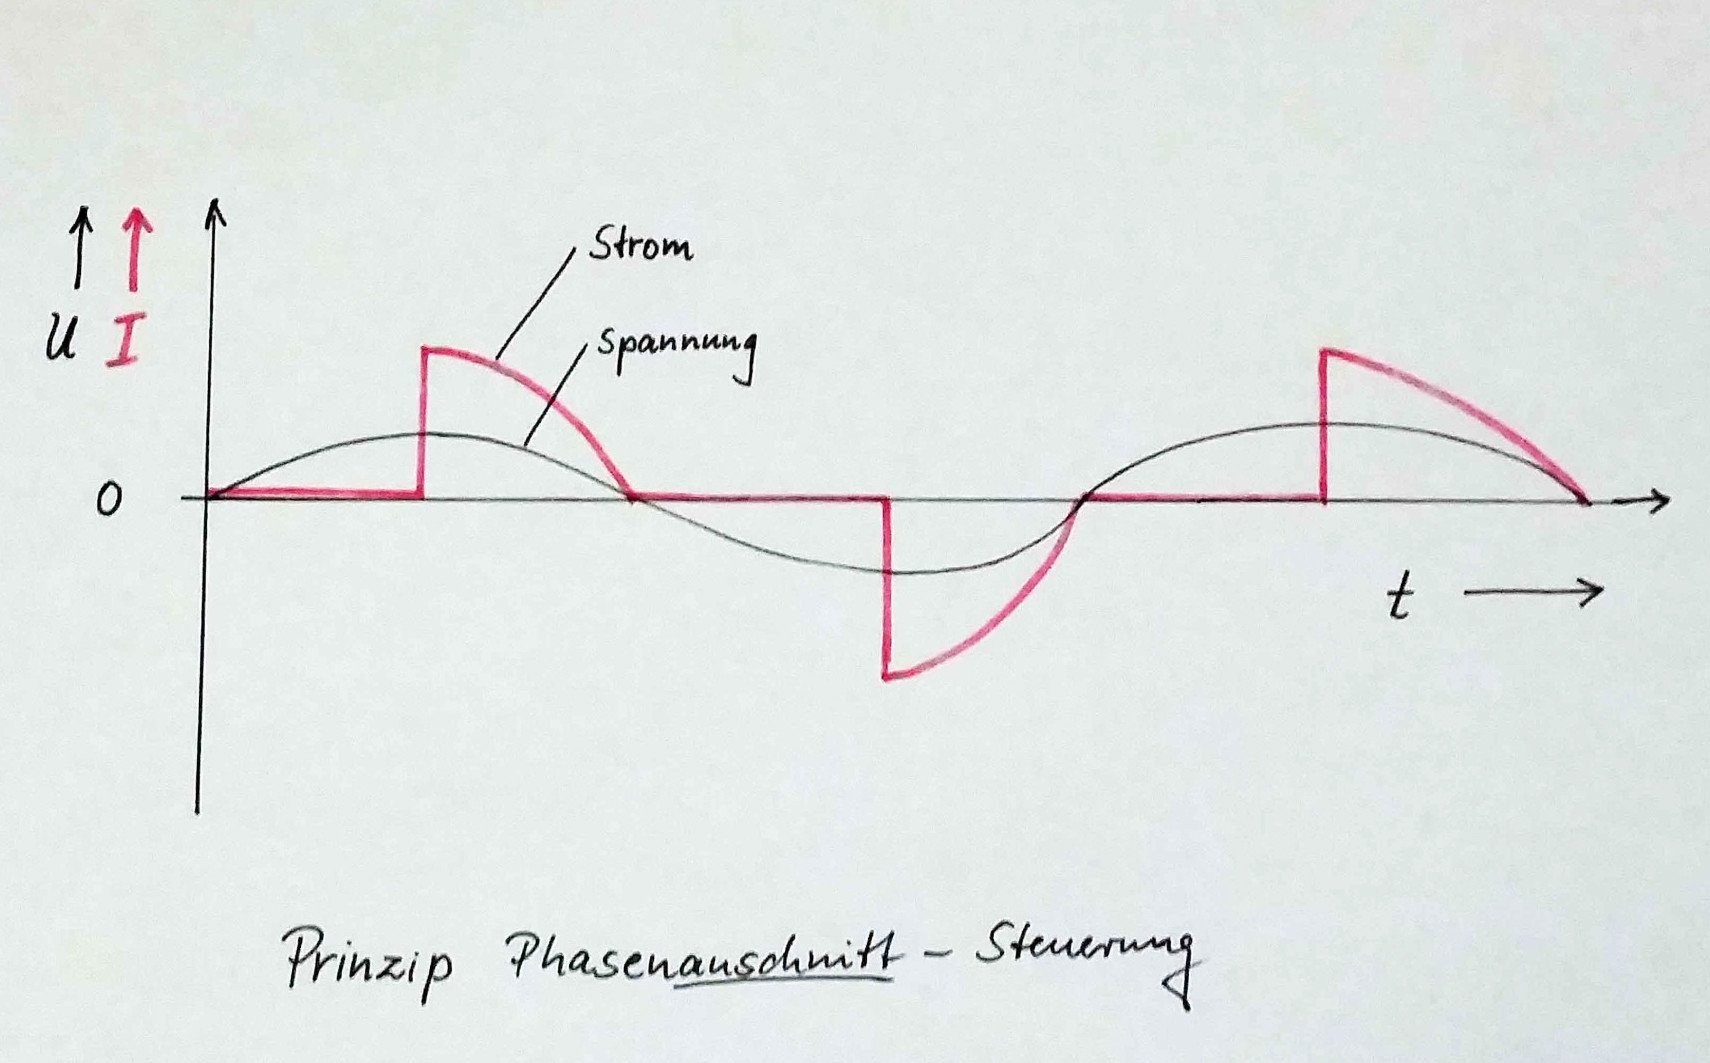 Strom
Spannung
U I
0
t
Prinzip Phasenanschnitt - Steuerung